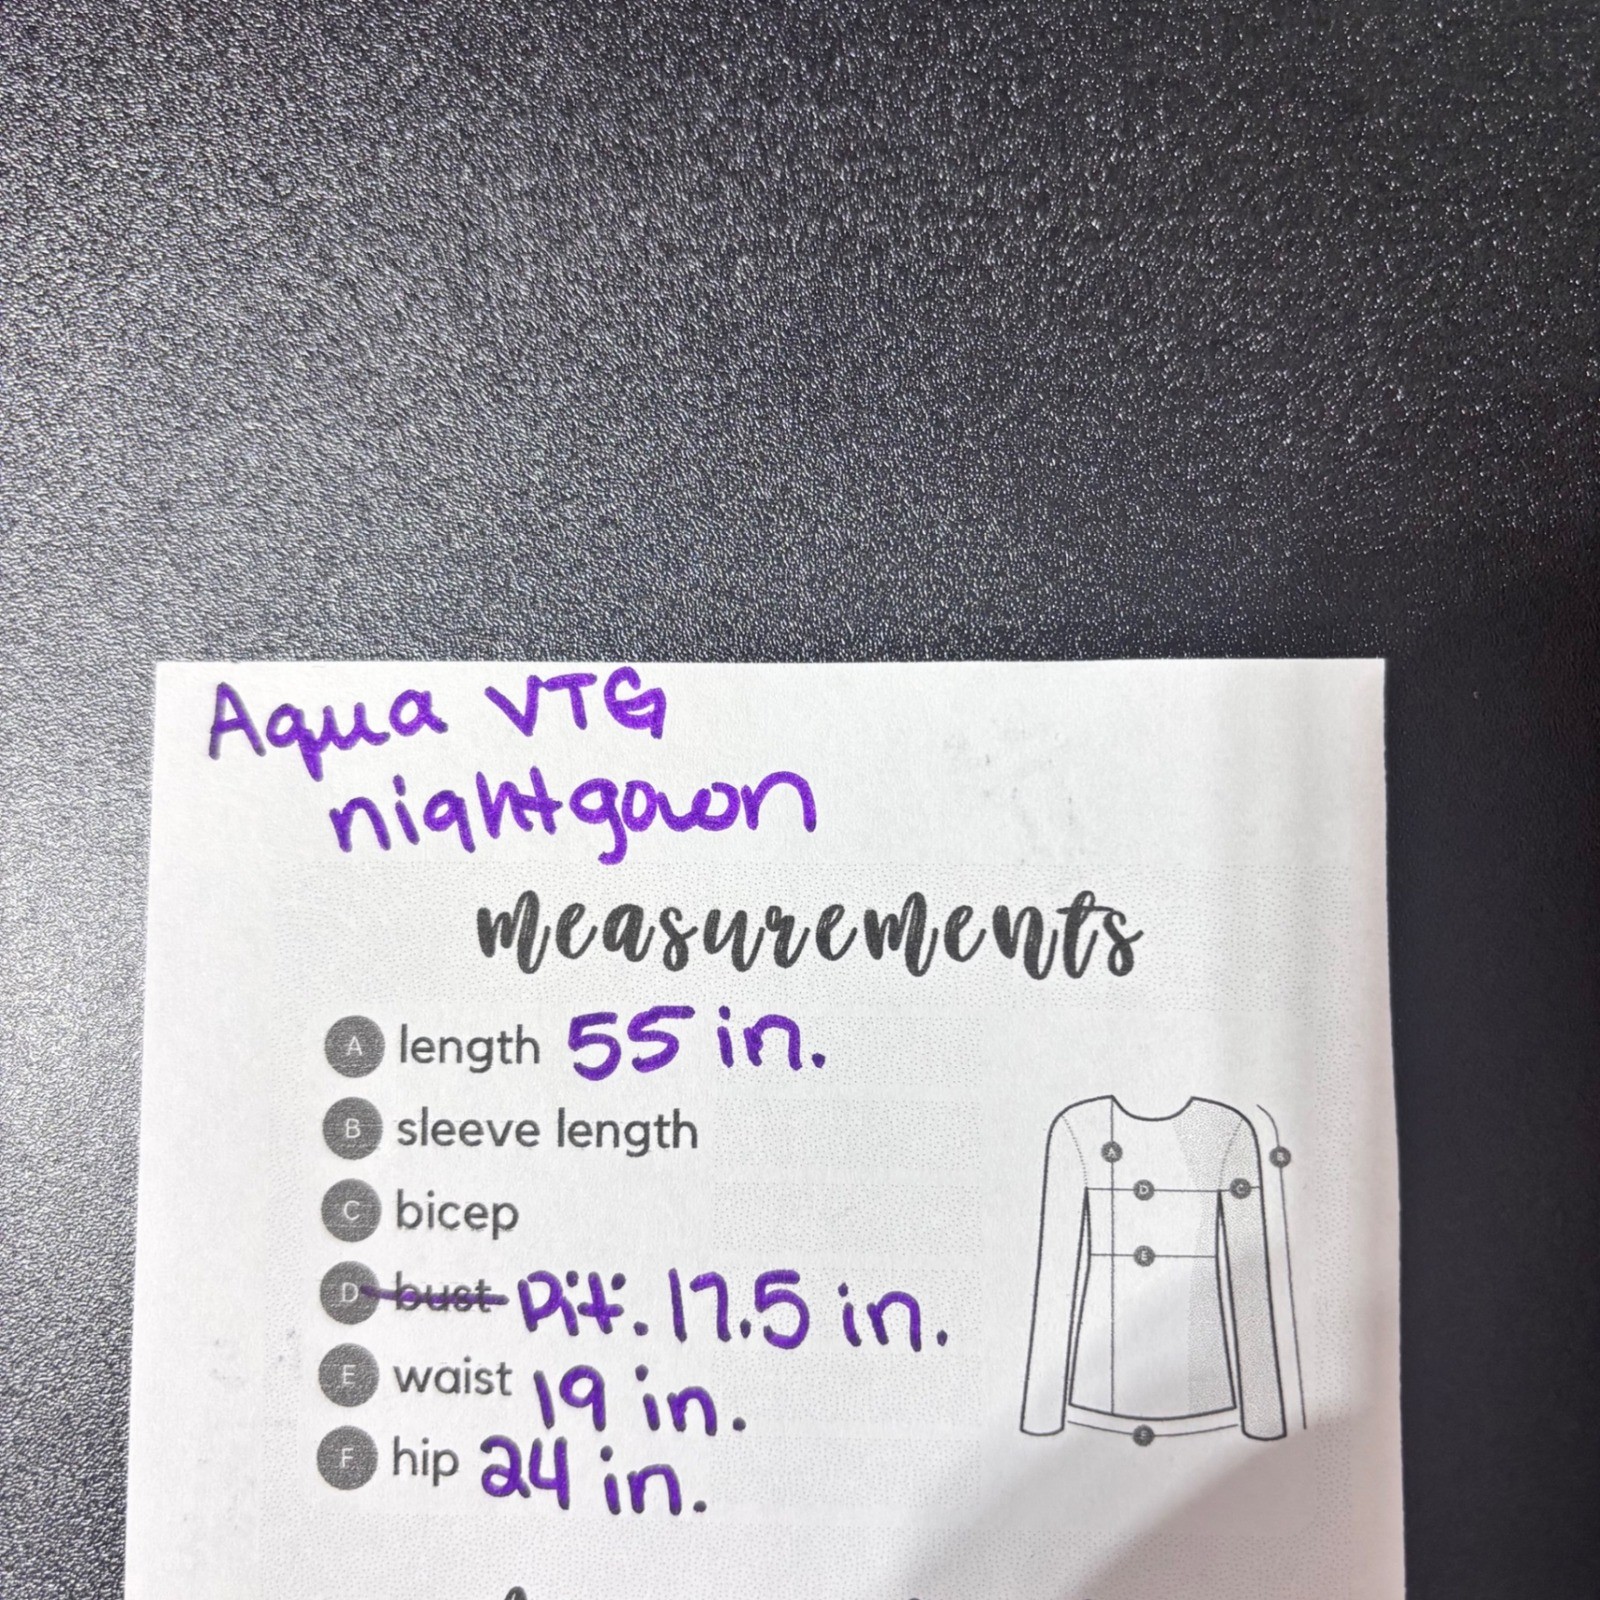 Aqua VTG
nightgown
measurements
A length 55 in.
B sleeve length
C bicep
D bust Pit. 17.5 in.
E waist 19 in.
F hip 24 in.
A
B
D
C
E
F